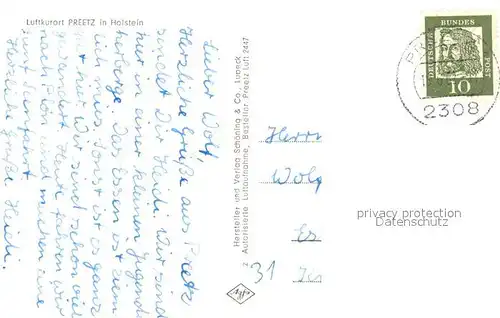 Luftkurort PREETZ in Holstein
Lieber Wolf,
Herzliche Grüße aus Preetz
sendet Dir Heidi. Wir sind
hier in einer kleinen Jugend
herberge. Das Essen ist zum
Sonst ist es ganz
hier. Wir sind schon viel
gewandert. Heute fahren wir
nach Plön und machen eine
Herzliche Grüße Heidi.
Hersteller und Verlag Schöning & Co., Lübeck
Autorisierte Luftaufnahme, Bestellnr Preetz Luft 2447
Herrn
Wolf
31
Agfa
DEUTSCHE BUNDESPOST
10
2308
privacy protection
Datenschutz